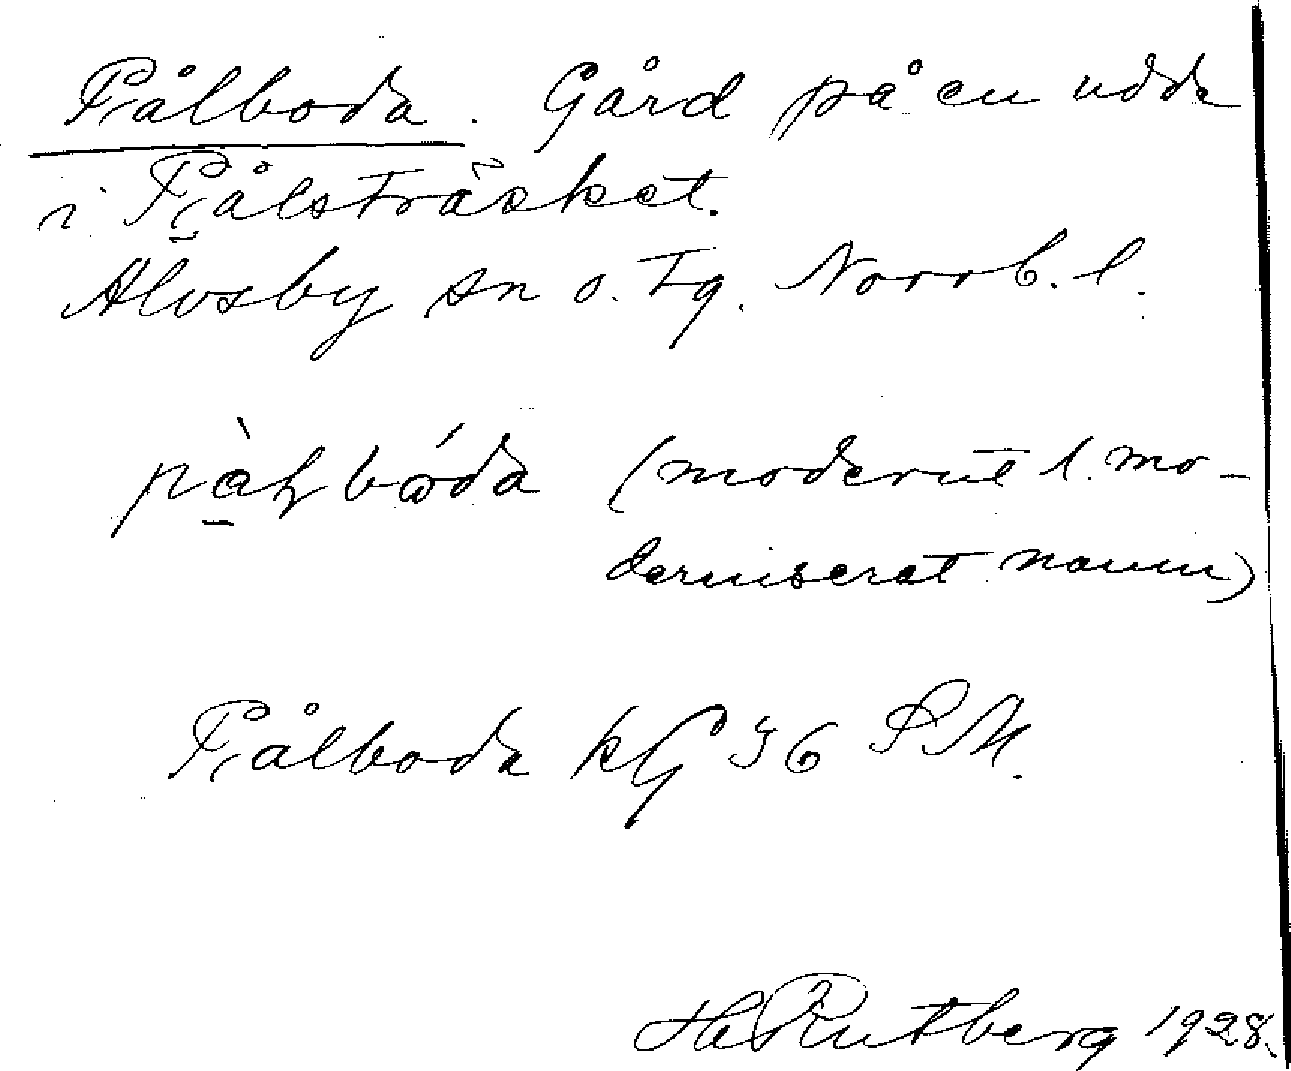 Pålboda. Gård på en udde
i Pålsträsket.
Älvsby sn o. tg. Norrb. l.
pàɫbóda (modernt l. mo-
derniserat namn)
Pålboda kG 36 P.M.
H Rutberg 1928.